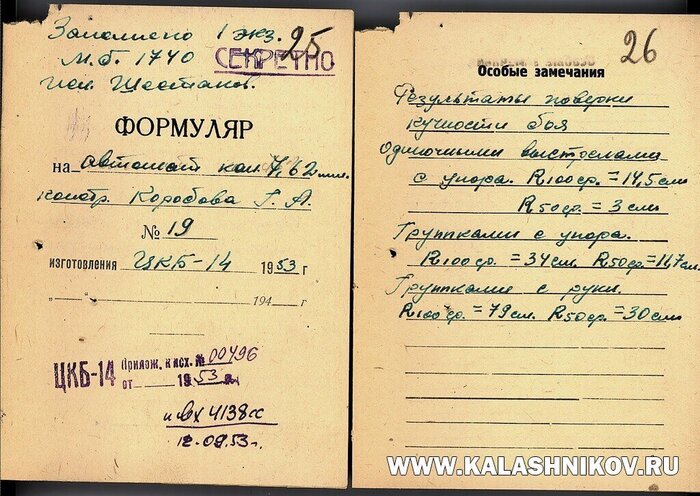 Заполнено 1 экз.
25
М.б. 1740
СЕКРЕТНО
исп. Шестаков.
ФОРМУЛЯР
на автомат кал 7,62 мм.
констр. Коробова Г. А.
№ 19
изготовления ЦКБ-14 1953 г
„ — “ 194 г
ЦКБ-14 Прилож. к исх. № 00496
от 1953 г.
и вх 4138сс
12.09.53г.
26
Особые замечания
Результаты поверки
кучности боя
одиночными выстрелами
с упора. R100ср. = 14,5см
R50ср. = 3см
Группками с упора.
R100ср. = 34см. R50ср. = 11,7см
Группками с руки.
R100ср. = 79см. R50ср. = 30см
WWW.KALASHNIKOV.RU